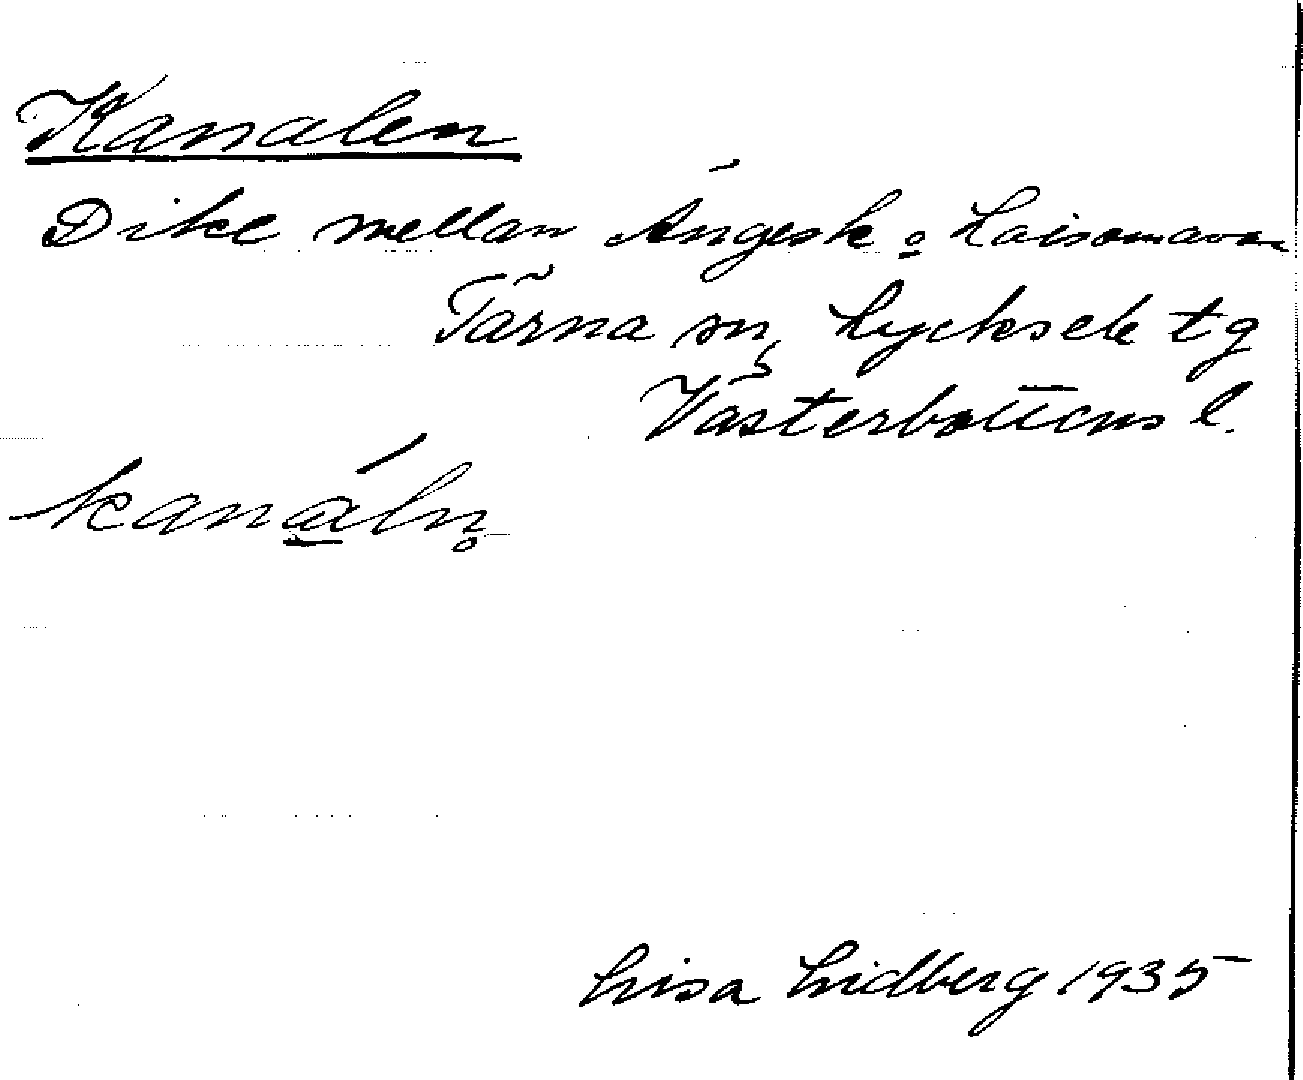 Kanalen
Dike mellan Ängesk o Laisomavan
Tärna sn, Lycksele tg
Västerbottens l.
kanáln̥
Lisa Lidberg 1935